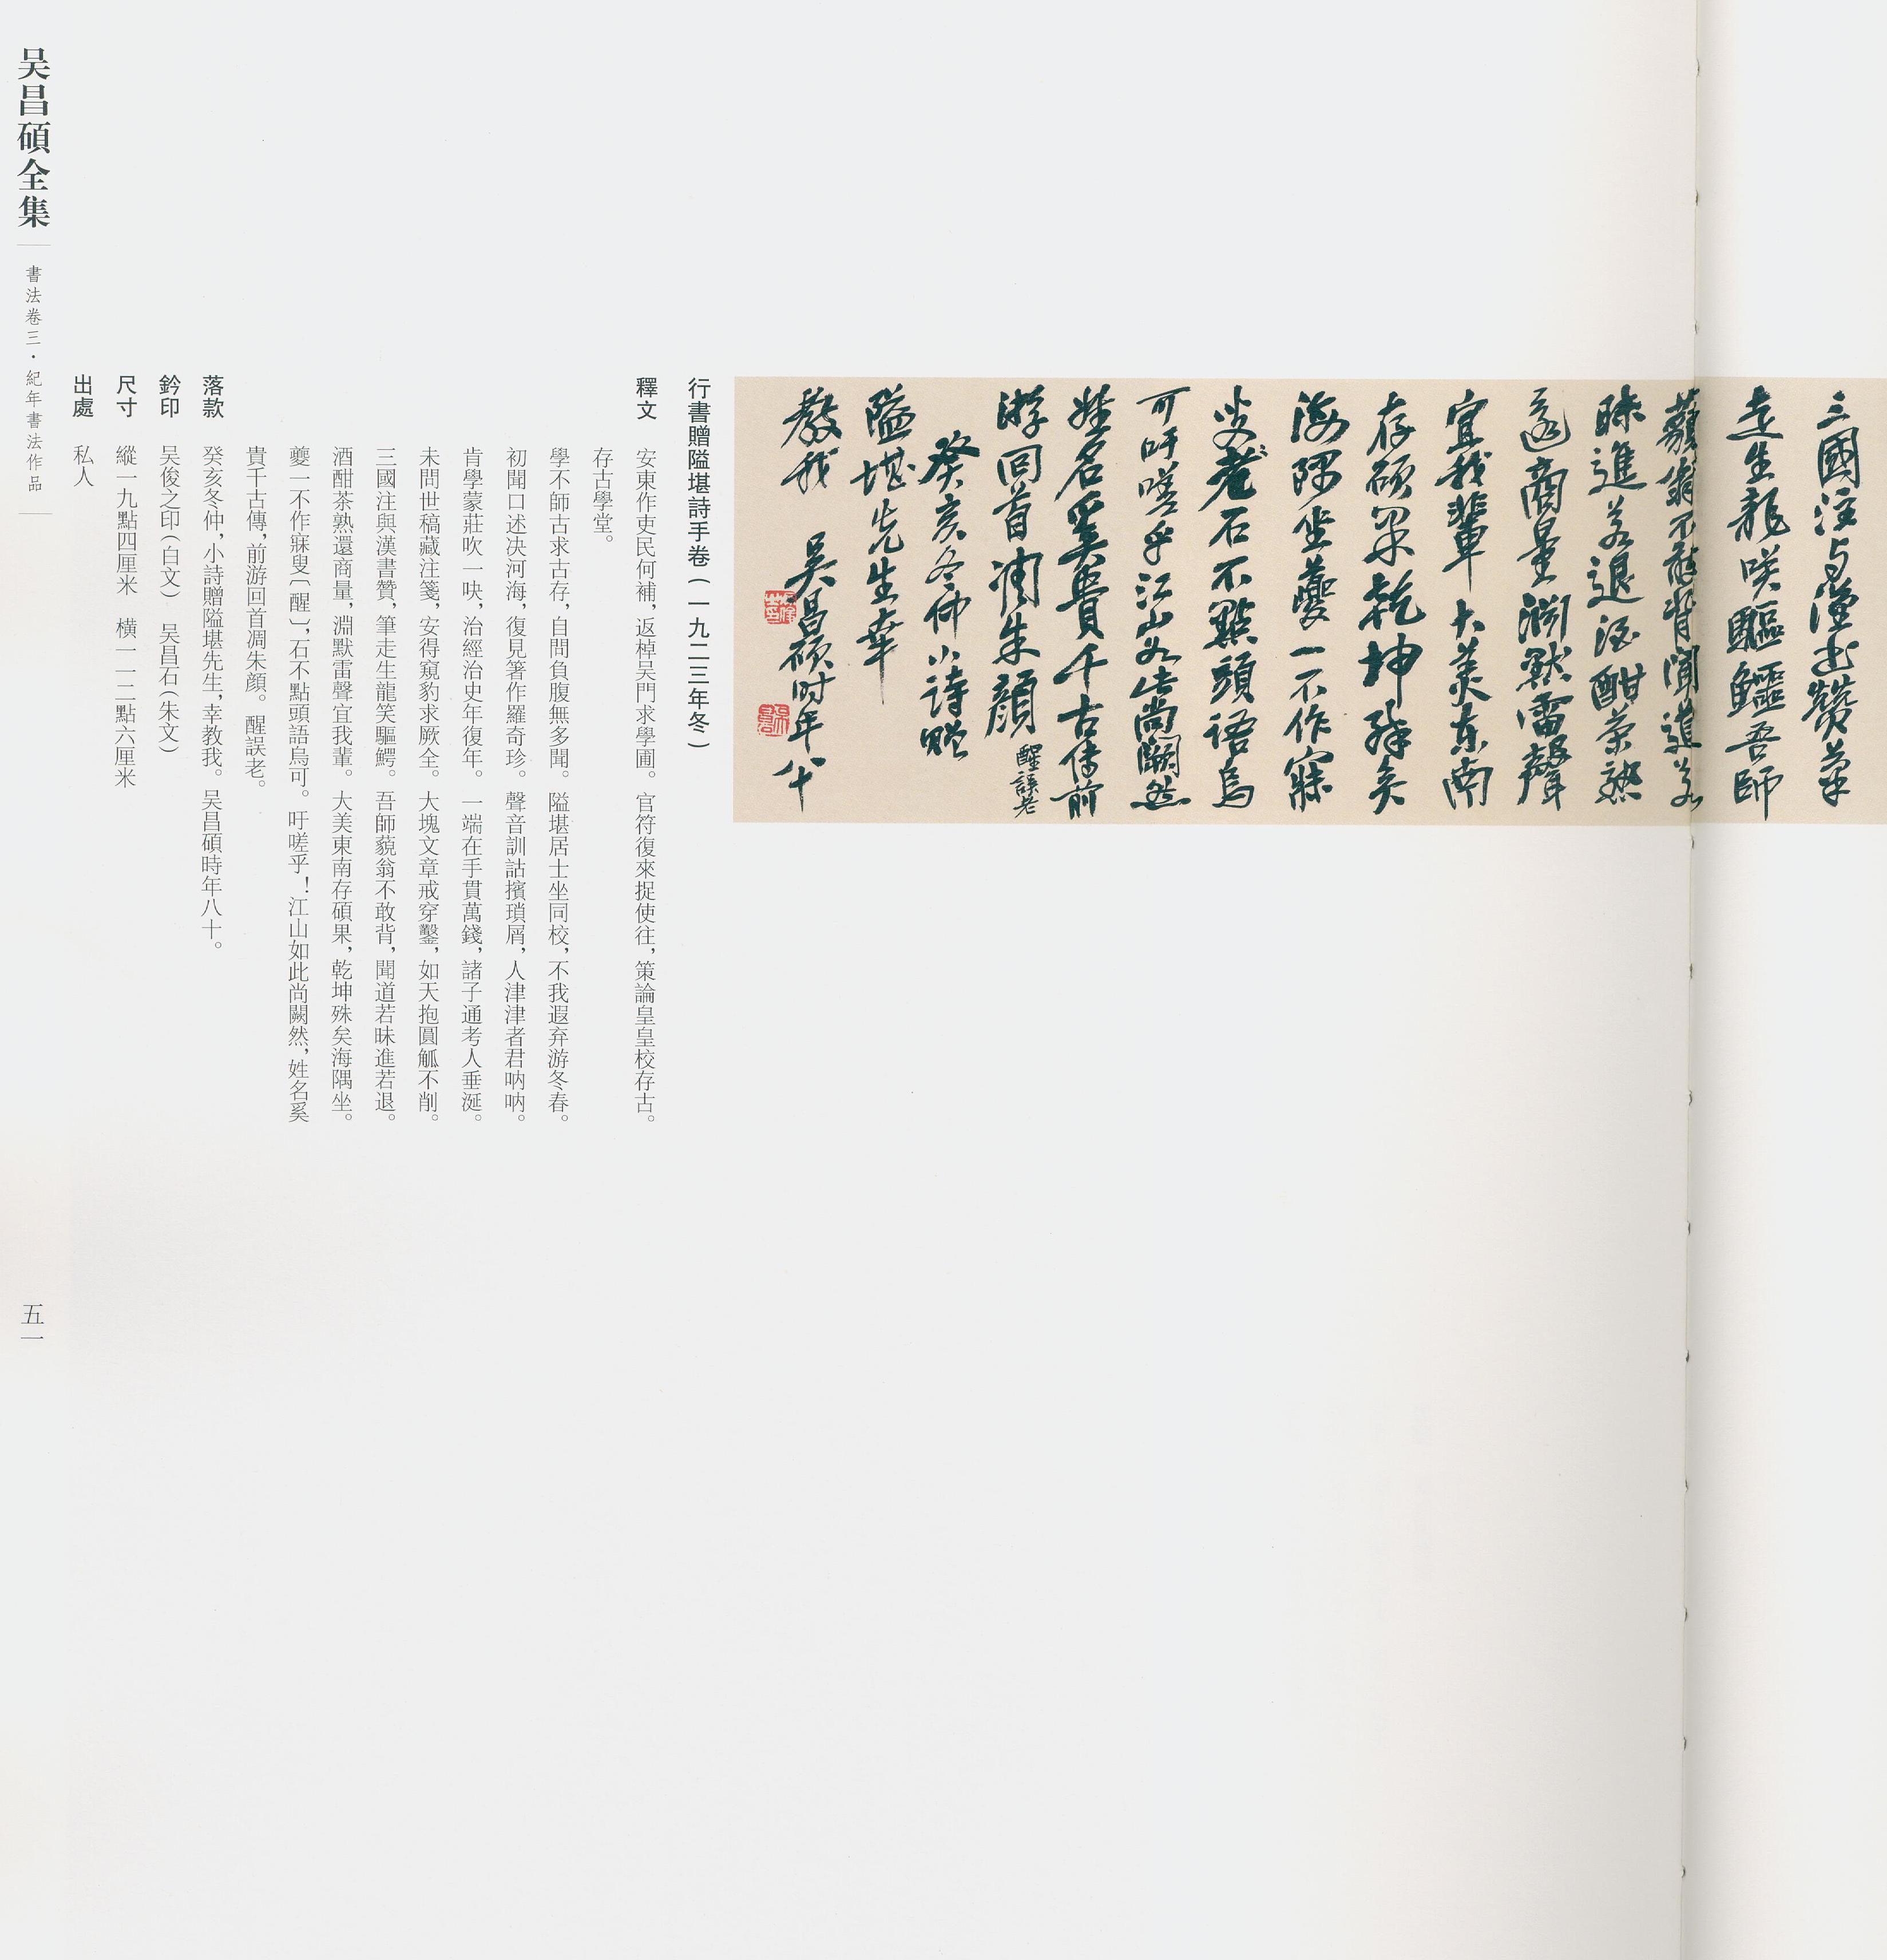 三國注与漢書贊筆
走生龍咲驅鱷吾師
藐翁不敢背聞道若
昧進若退酒酣茶熟
還商量淵默雷聲
宜我輩大美东南
存碩果乾坤殊矣
海隅坐夔一不作寐
叟老石不點頭語烏
可吁嗟乎江山如此尚闕然
姓名奚貴千古傳前
游回首凋朱顏 醒誤老
癸亥冬仲小詩贈
隘堪先生幸
教我 吴昌碩时年八十
行書贈隘堪詩手卷(一九二三年冬)
釋文 安東作吏民何補,返棹吴門求學圃。官符復來捉使往,策論皇皇校存古。
存古學堂。
學不師古求古存,自問負腹無多聞。隘堪居士坐同校,不我遐弃游冬春。
初聞口述决河海,復見箸作羅奇珍。聲音訓詁擯瑣屑,人津津者君呐呐。
肯學蒙莊吹一吷,治經治史年復年。一端在手貫萬錢,諸子通考人垂涎。
未問世稿藏注箋,安得窺豹求厥全。大塊文章戒穿鑿,如天抱圓觚不削。
三國注與漢書贊,筆走生龍笑驅鰐。吾師藐翁不敢背,聞道若昧進若退。
酒酣茶熟還商量,淵默雷聲宜我輩。大美東南存碩果,乾坤殊矣海隅坐。
夔一不作寐叟〔醒〕,石不點頭語烏可。吁嗟乎!江山如此尚闕然,姓名奚
貴千古傳,前游回首凋朱顔。醒誤老。
落款 癸亥冬仲,小詩贈隘堪先生,幸教我。吴昌碩時年八十。
鈐印 吴俊之印(白文) 吴昌石(朱文)
尺寸 縱一九點四厘米 横一一二點六厘米
出處 私人
吴昌碩全集
書法卷三·紀年書法作品
五一